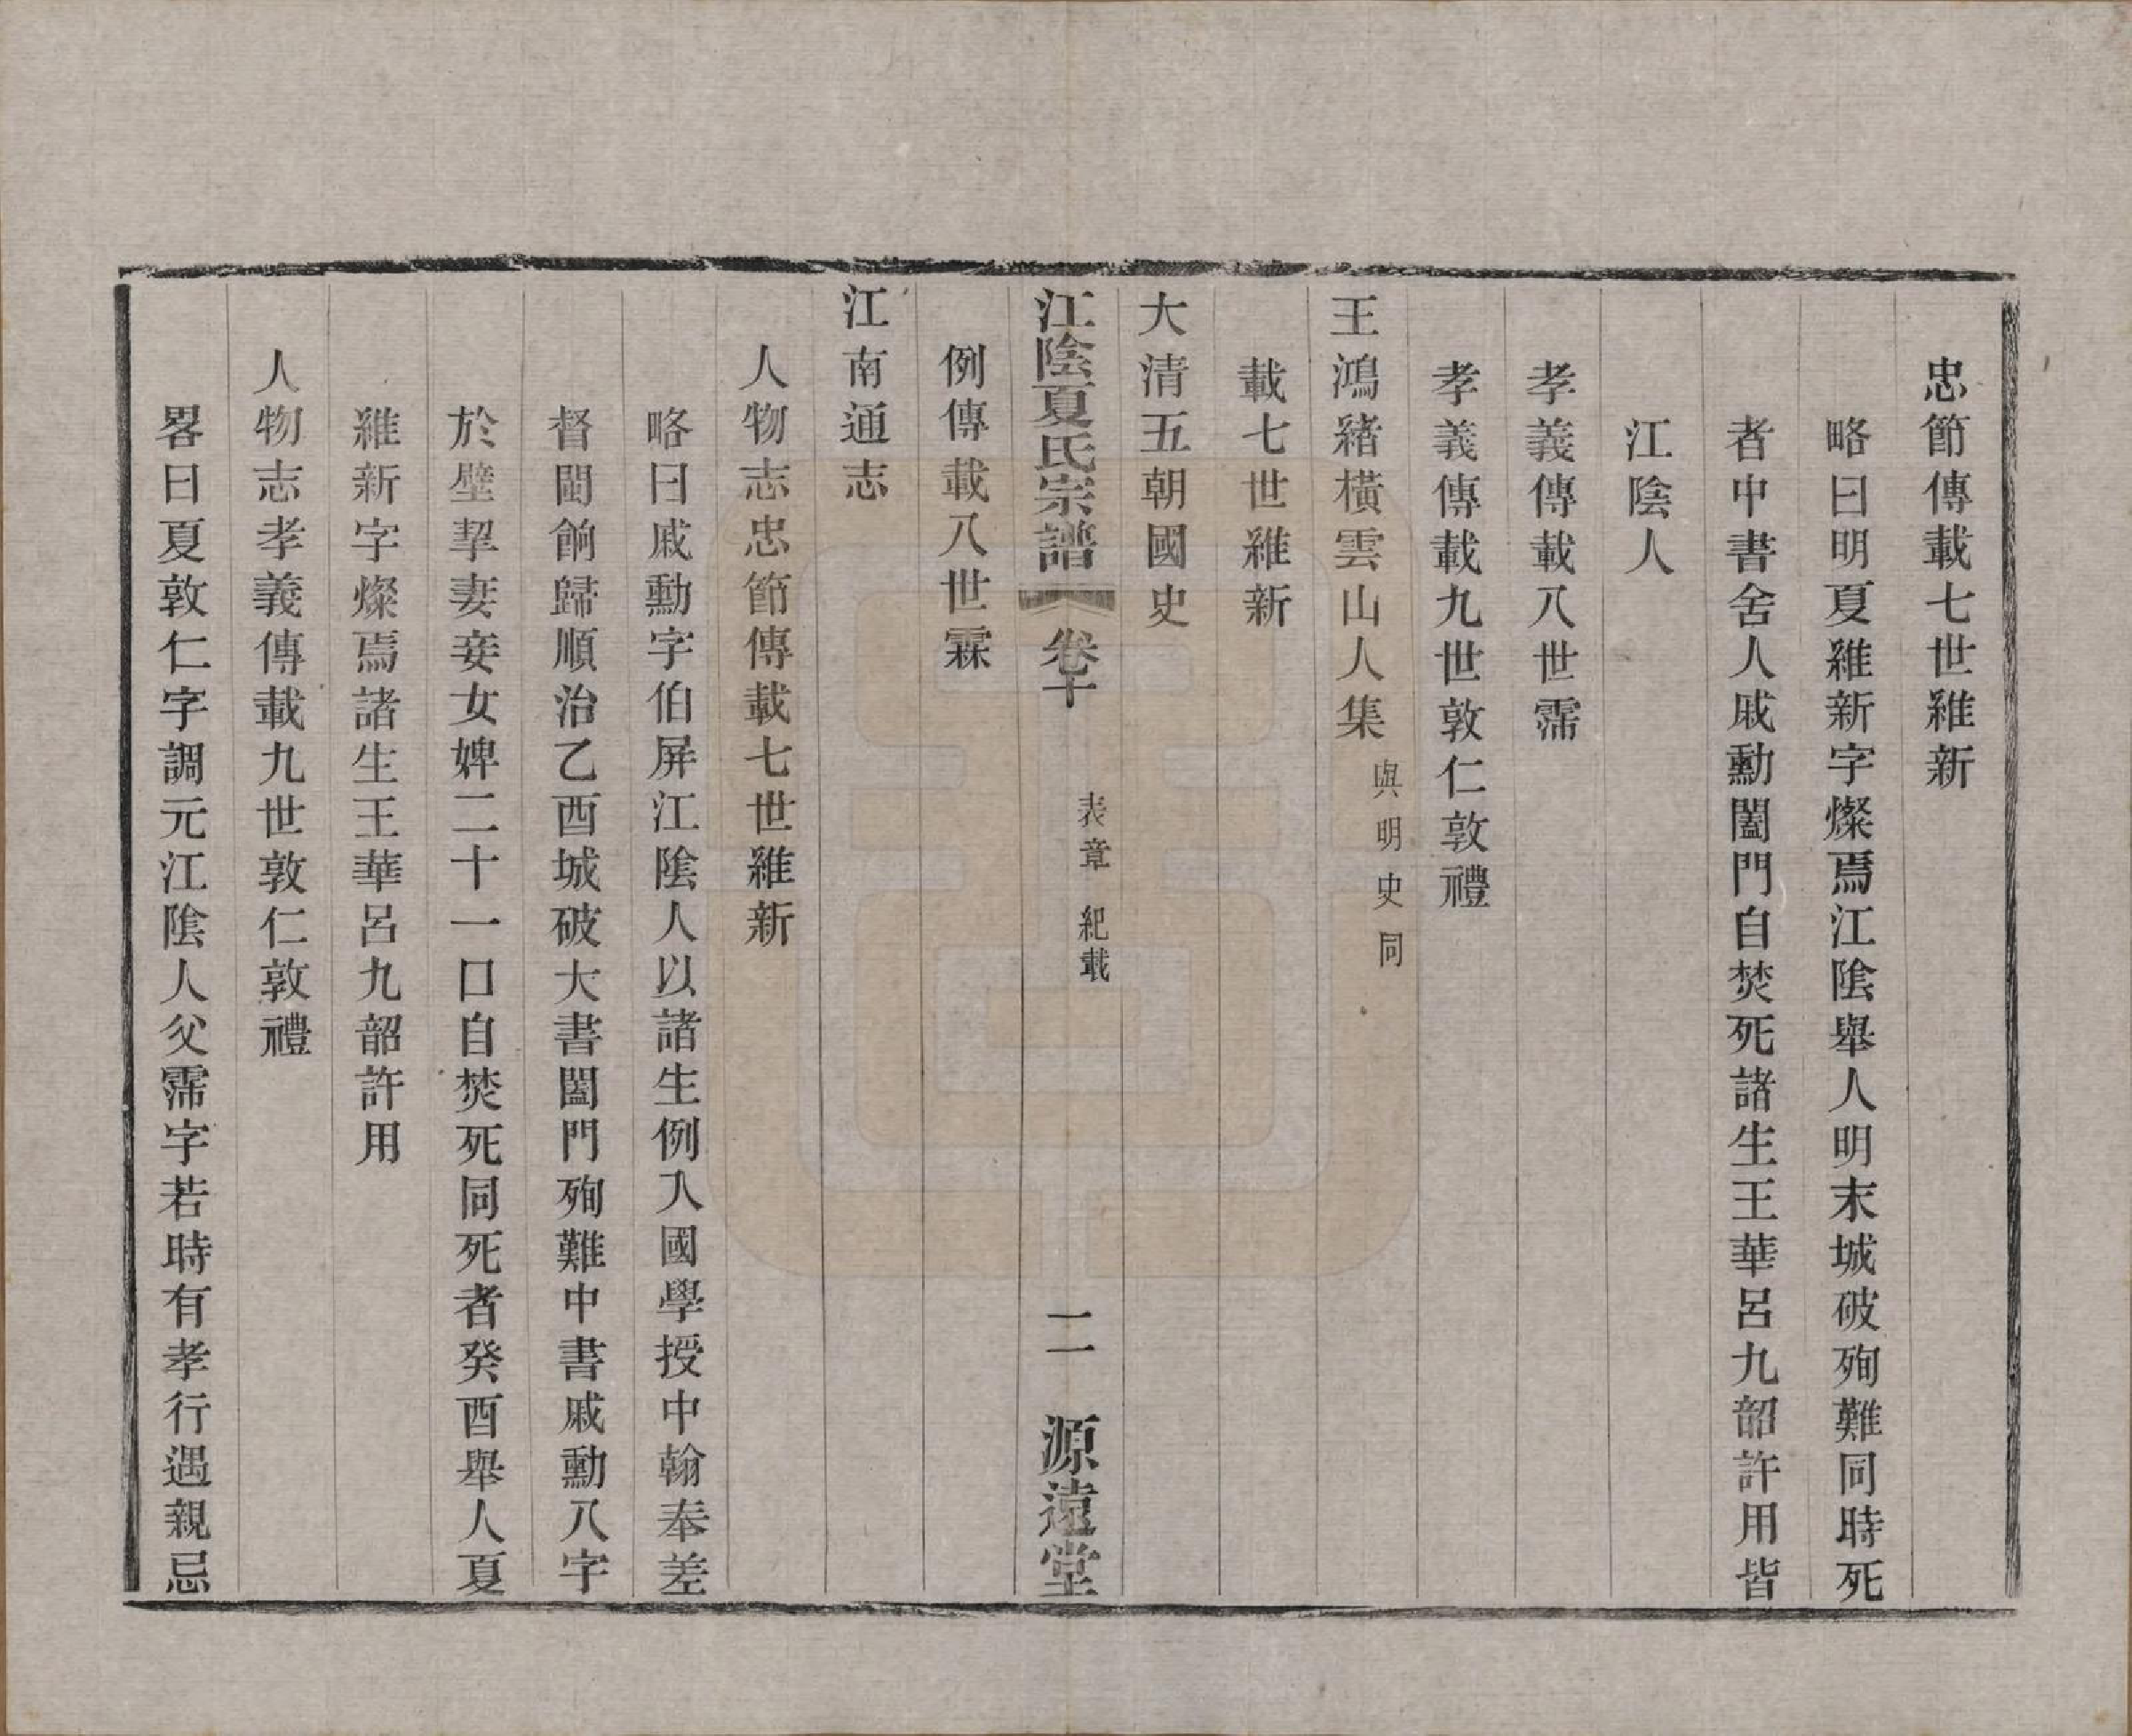 忠節傳載七世維新
略曰明夏維新字燦焉江陰舉人明末城破殉難同時死
者中書舍人戚勳闔門自焚死諸生王華呂九韶許用皆
江陰人
孝義傳載八世霈
孝義傳載九世敦仁敦禮
王鴻緖橫雲山人集 與明史同
載七世維新
大清五朝國史
江陰夏氏宗譜 卷十 表章 紀載 二 源遠堂
例傳載八世霖
江南通志
人物志忠節傳載七世維新
略曰戚勳字伯屏江陰人以諸生例入國學授中翰奉差
督閩餉歸順治乙酉城破大書闔門殉難中書戚勳八字
於壁挈妻妾女婢二十一口自焚死同死者癸酉舉人夏
維新字燦焉諸生王華呂九韶許用
人物志孝義傳載九世敦仁敦禮
畧曰夏敦仁字調元江陰人父霈字若時有孝行遇親忌